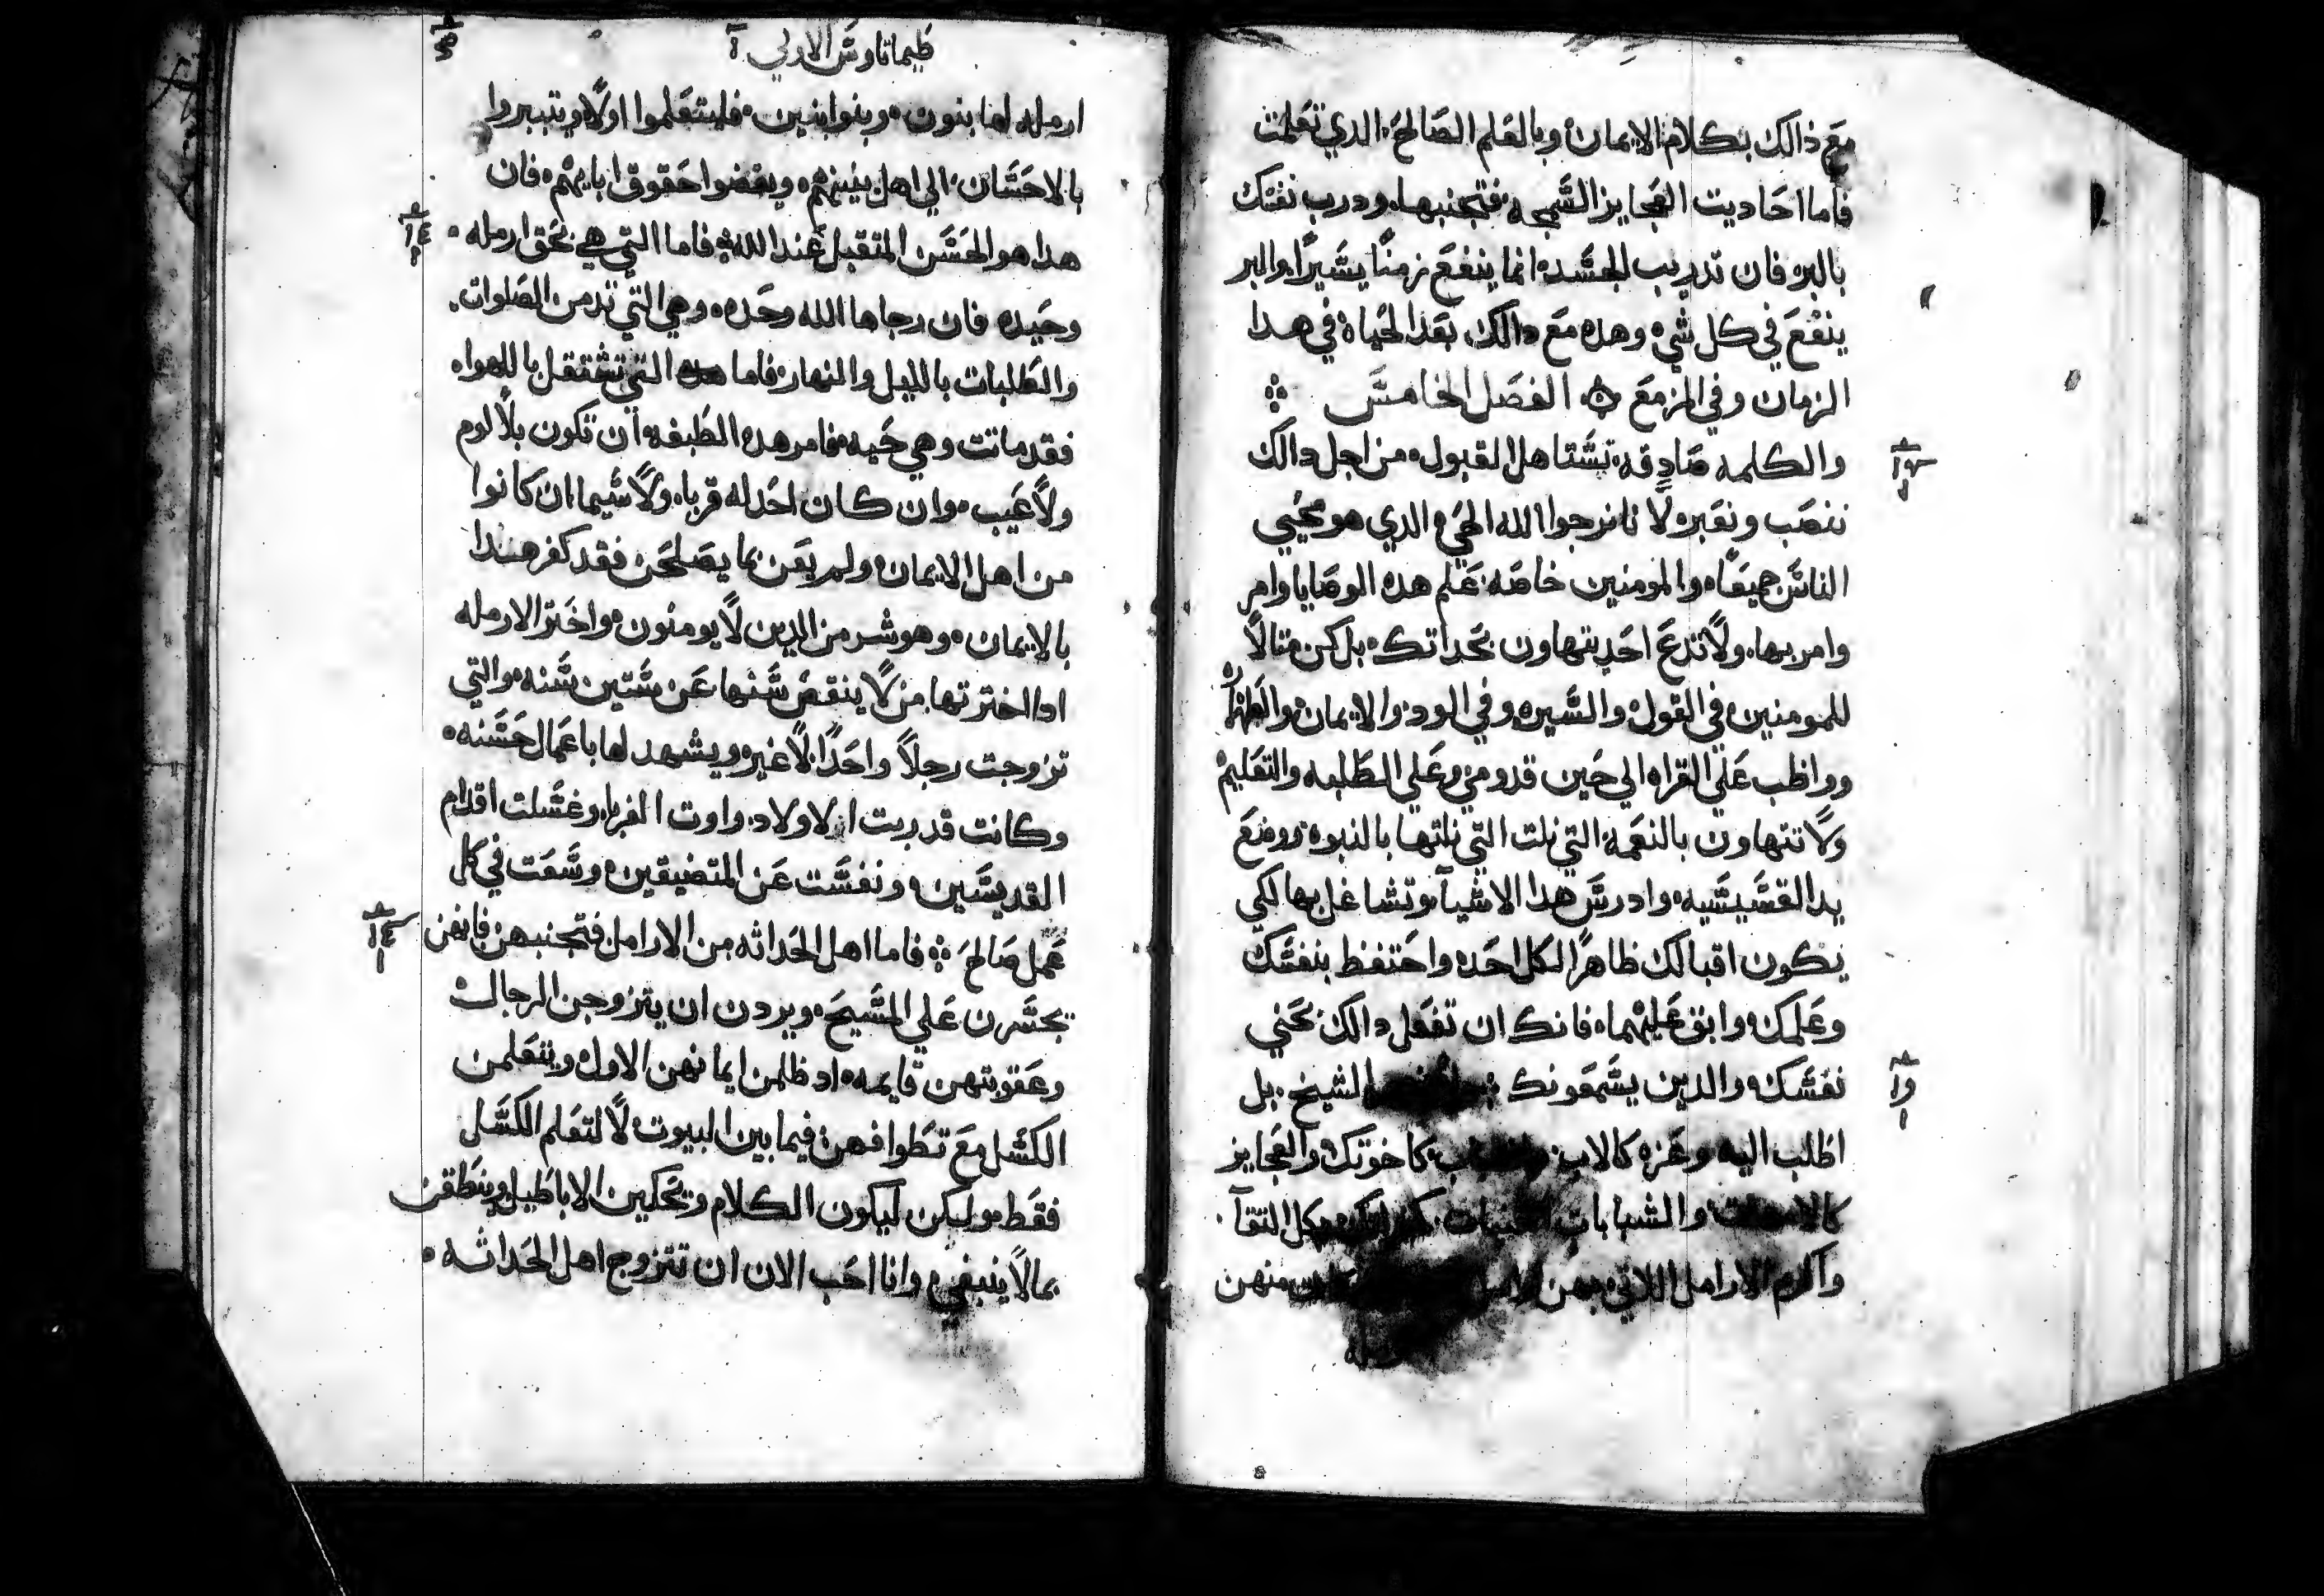 مع ذالك بكلام الايمان وبالعلم الصالح الدي تعلمت
فاما احاديت العجايز السمجه فتجنبها ودرب نفسك
بالبر فان تدريب الجسد انما ينفع زمنًا يسيرًا والبر
ينفع في كل شي وهده مع دالك بعد الحياه في هدا
الزمان وفي المزمع الفصل الخامس
والكلمه صادقه تستاهل القبول من اجل دالك
ننصب ونعبر لانا نرجوا الله الحي الدي هو محيي
الناس جميعًا والمومنين خاصه علم هده الوصايا وامر
وامر بها ولا تدع احد يتهاون بحداتتك بل كن متالًا
للمومنين في القول والسيره وفي الود والايمان والطهاره
وواظب علي القراه الي حين قدومي وعلي الطلبه والتعليم
ولا تتهاون بالنعمه التي نلت التي نلتها بالنبوه ووضع
يد القسيسيه وادرس هدا الاشيا وتشاغل بها لكي
يكون اقبالك ظاهرًا لكل احد واحتفظ بنفسك
وعلمك وابق عليهما فانك ان تفعل دالك تحني
نفسك والدين يسمعونك الشيخ بل
اطلب اليه وعزه كالاب كاخوتك والعجايز
كالامهات والشبابات بكل التقا
واكرم الارامل اللاتي هن منهن
طيماتاوس الاولي
ارمله لها بنون وبنوا بنين فليتعلموا اولًا ويتبرروا
بالاحسان الي اهل بيتهم ويقضوا حقوق ابايهم فان
هدا هو الحسن المتقبل عند الله فاما التي هي بحق ارمله
وحيده فان رجاها الله وحده وهي التي تدمن الصلوات
والطلبات بالليل والنهار فاما التي تشتغل باللهواه
فقد ماتت وهي حيه فامر هده الطبقه ان تكون بلا لوم
ولا عيب وان كان احد له قربا ولا سيما ان كانوا
من اهل الايمان ولم يعن بما يصلحن فقد كفر هدا
بالايمان وهو شر من الدين لا يومنون واختر الارمله
ادا اخترتها من لا ينقص سنها عن ستين سنه والتي
تزوجت رجلًا واحدًا لا غيره ويشهد لها باعمال حسنه
وكانت قد ربت الاولاد واوت الغربا وغسلت اقدام
القديسين ونفست عن المتضيقين وسعت في كل
عمل صالح فاما اهل الحداثه من الارامل فتجنبهن فانهن
تجسرن علي المسيح ويردن ان يتزوجن الرجال
وعقوبتهن قايمه اد ظلمن ايمانهن الاول ويتعلمن
الكسل مع تطوافهن فيما بين البيوت لا لتعلم الكسل
فقط وليكن ليكون الكلام وتحكين الاباطيل وينطقن
بمالا ينبغي وانا احب الان ان تتزوج اهل الحداثه